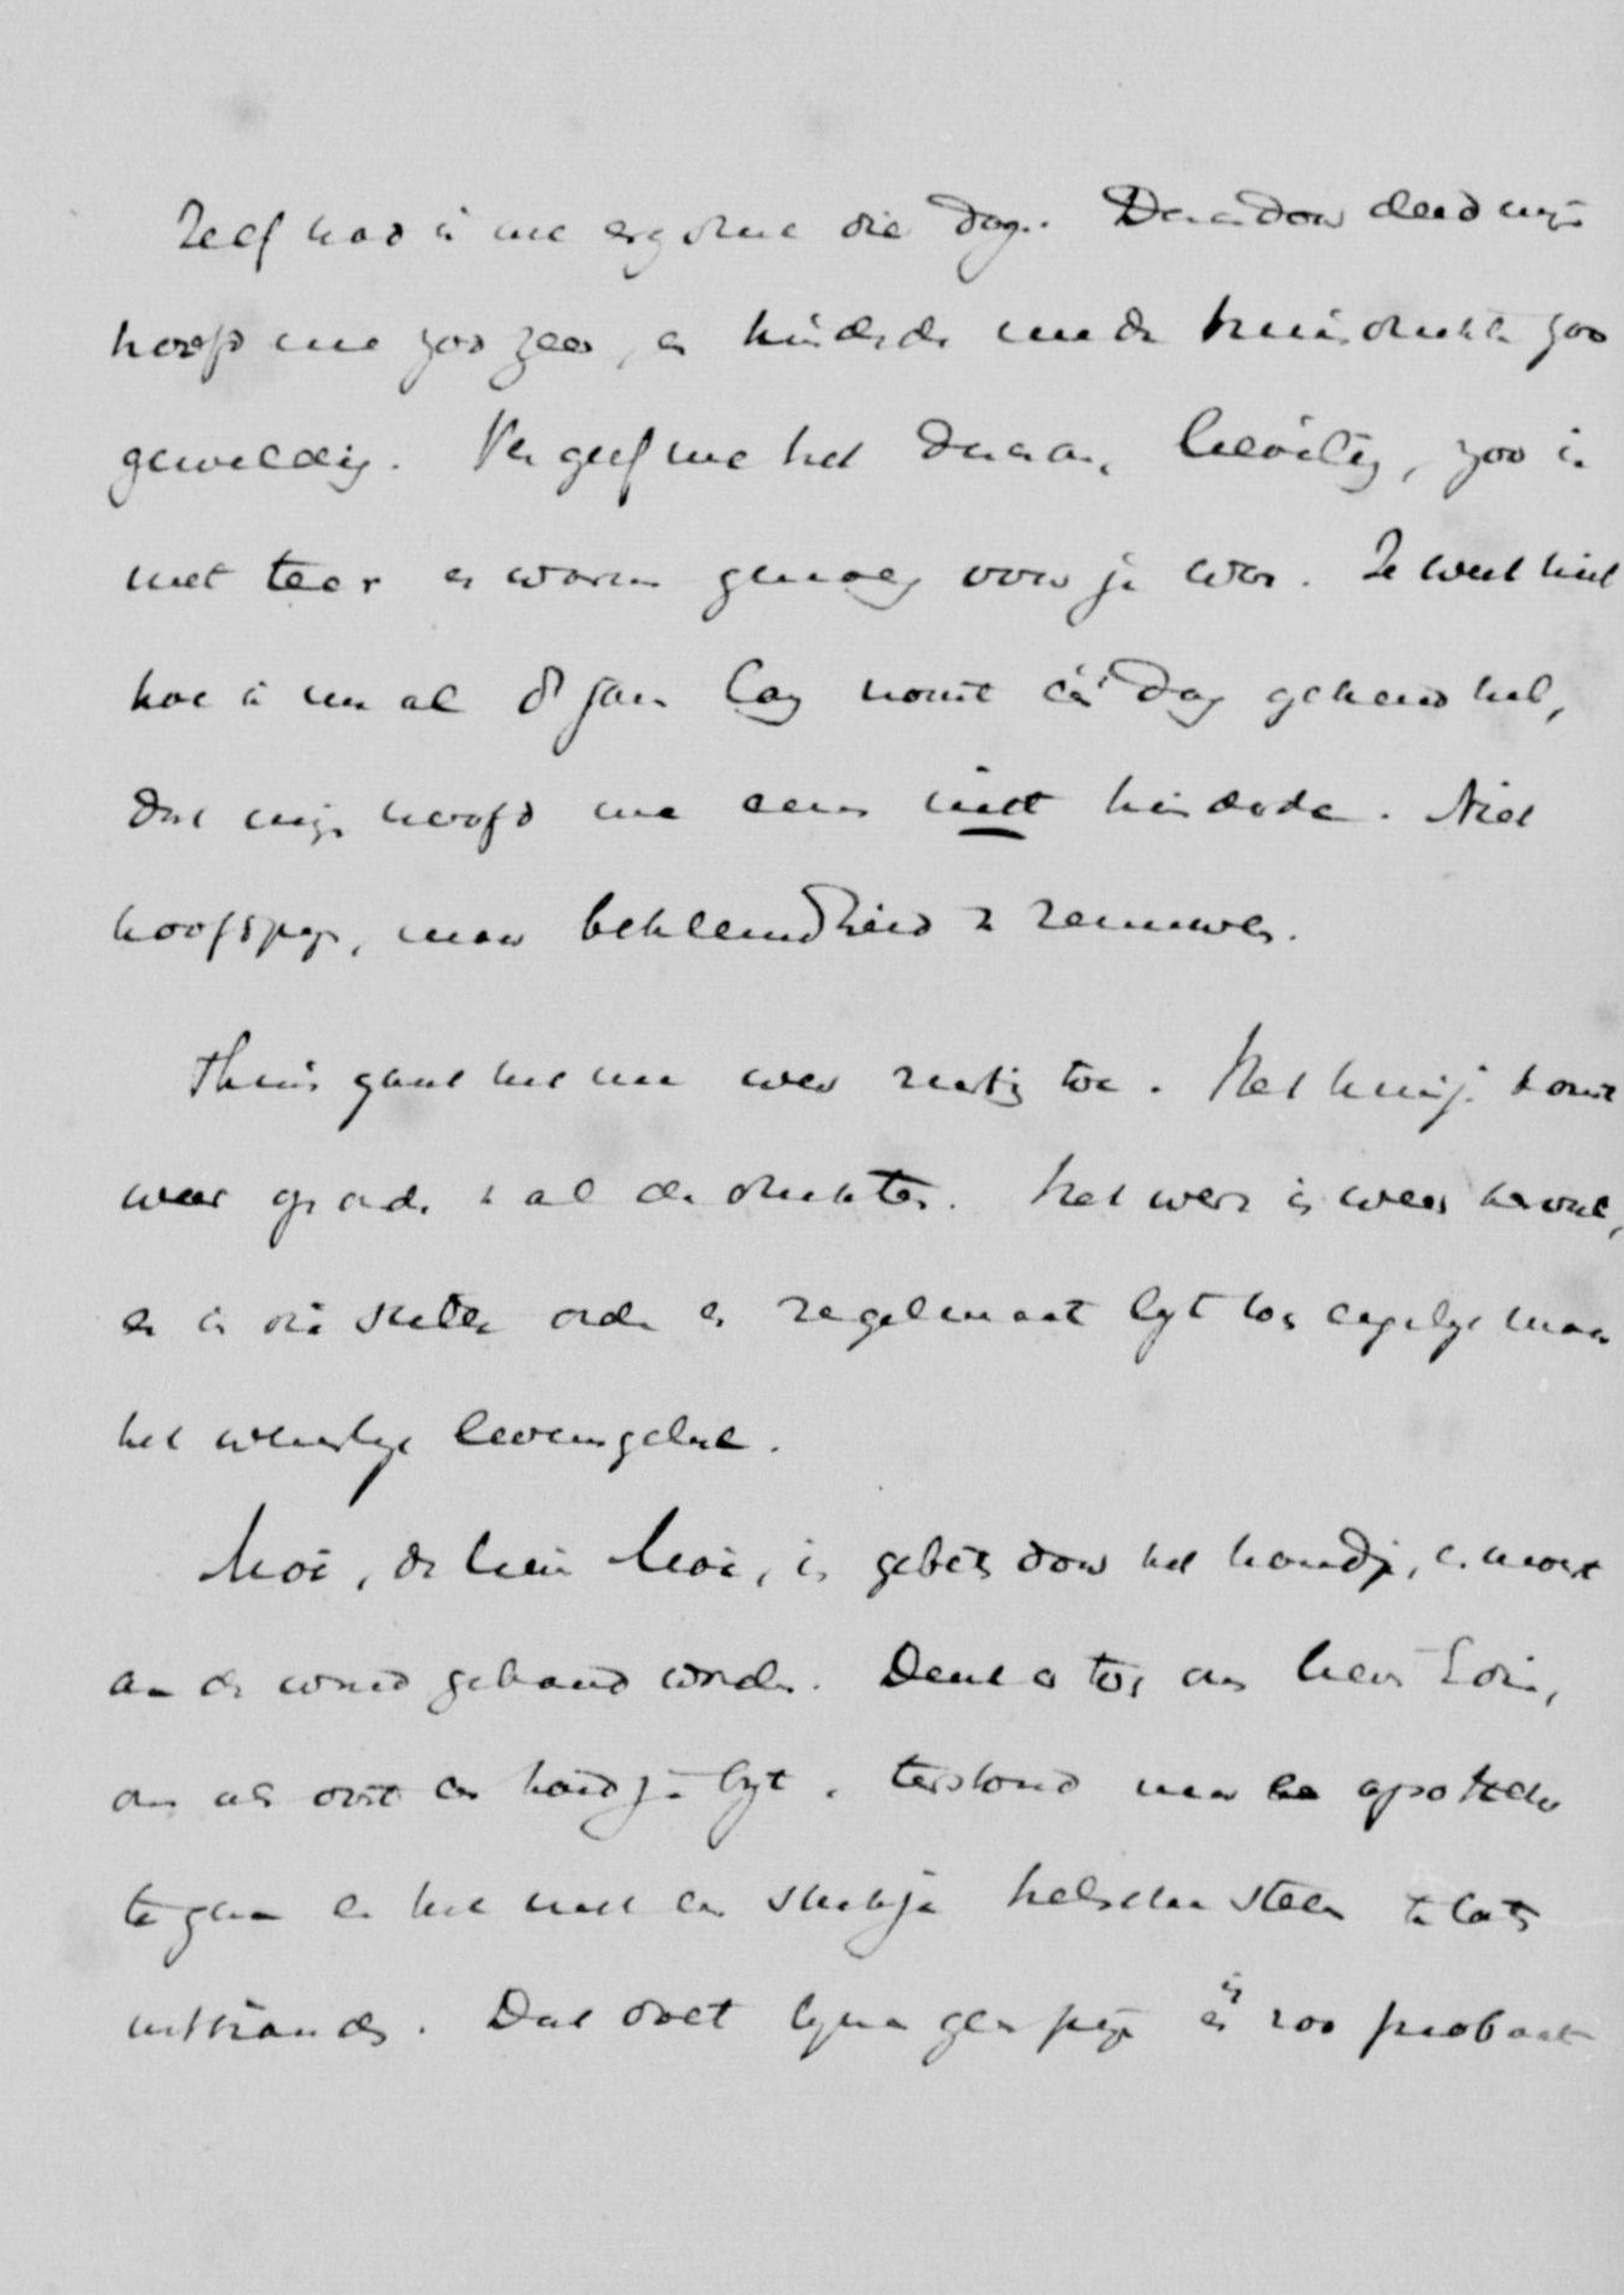 Zelf had ik me erg druk die dagen. Daardoor deed mijn
hoofd me zoo zeer, en hinderde me de huisdrukte zoo
geweldig. Vergeef me het daarom, lieveling, zoo ik
niet teer en warm genoeg voor je was. Je weet niet
hoe ik nu al 8 jaar lang nooit één dag gekend heb,
dat mijn hoofd me eens niet hinderde. Niet
hoofdpijn, maar beklemdheid en zenuwen.
Thuis gaat het nu weer rustig toe. Het huisje komt
weer op orde na al de drukte. Het werk is weer hervat,
en in die stille orde en regelmaat ligt toch eigenlijk maar
het wezenlijke levensgeluk.
, de kleine , is gebeten door het hondje, en moest
aan de wond gebrand worden. Denk er toch aan lieve
om als ooit een hondje bijt, terstond naar een apotheker
te gaan en het met een stukje helschen steen te laten
uitbranden. Dat doet bijna geen pijn en is zoo probaat